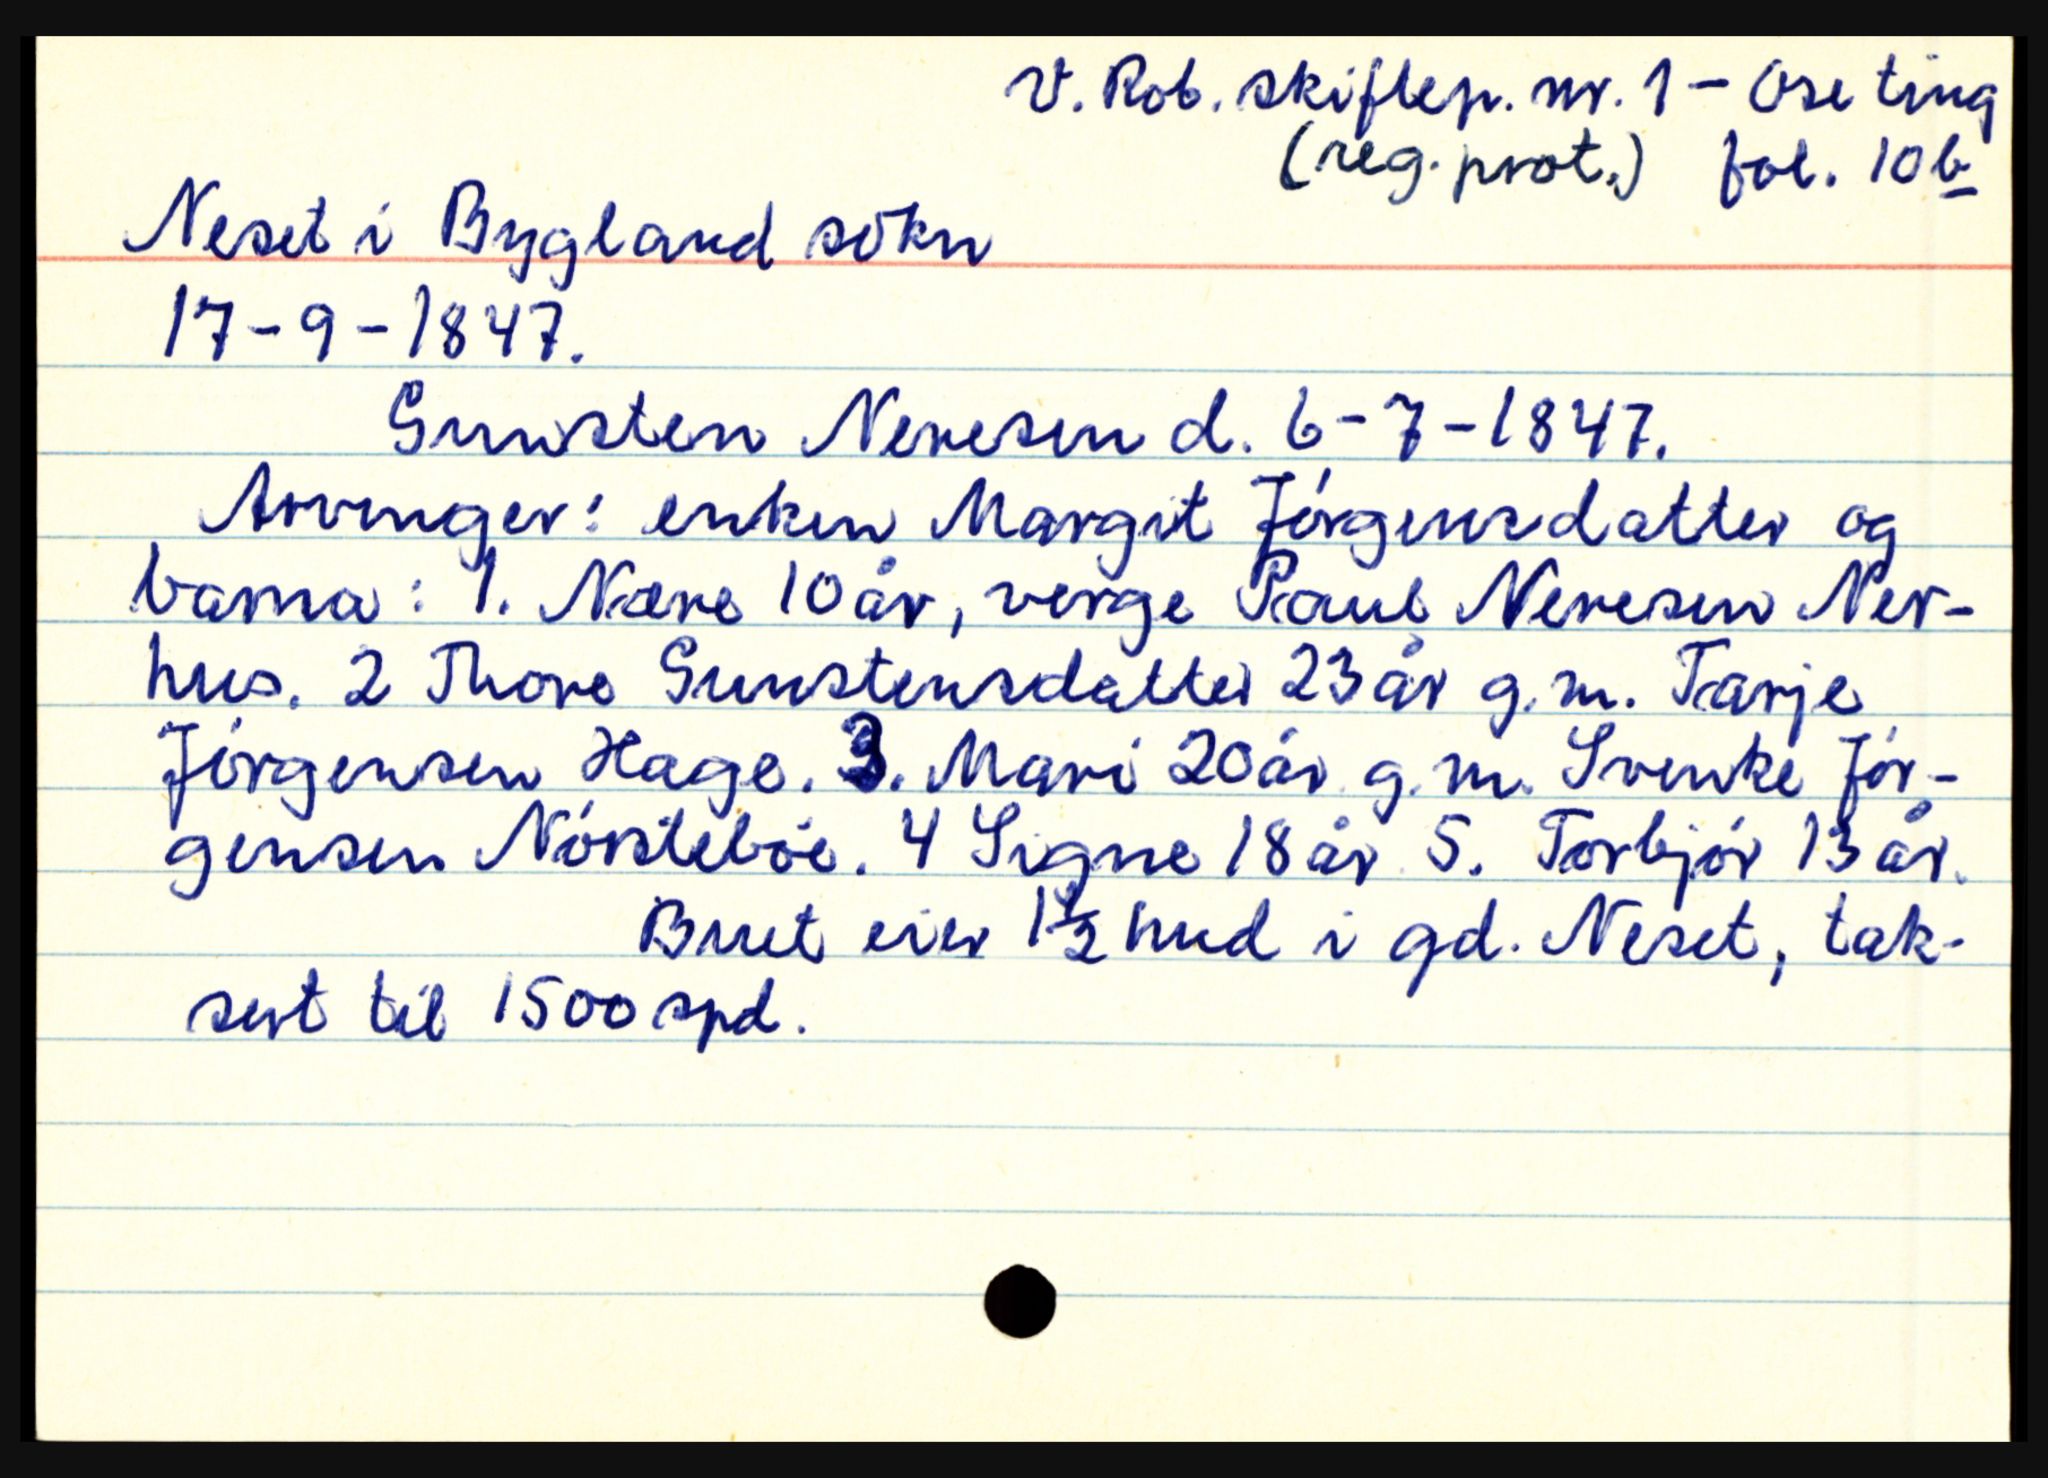 V. Rob. skiftep. nr. 1 - Ose ting
(reg. prot.) fol. 10b
Neset i Bygland sókn
17-9-1847.
Gunsten Neresen d. 6-7-1847.
Arvinger: enken Margit Jórgensdatter og
barna: 1. Nære 10 år, verge Paul Neresen Ner-
hus. 2 Thore Gunstensdatter 23 år g.m. Tarje
Jórgensen Hage. 3. Mari 20 år g.m. Svenke Jór-
gensen Nórstebóe. 4 Signe 18 år 5. Torbjór 13 år.
Buet eier 1½ hud i gd. Neset, tak-
sert til 1500 spd.